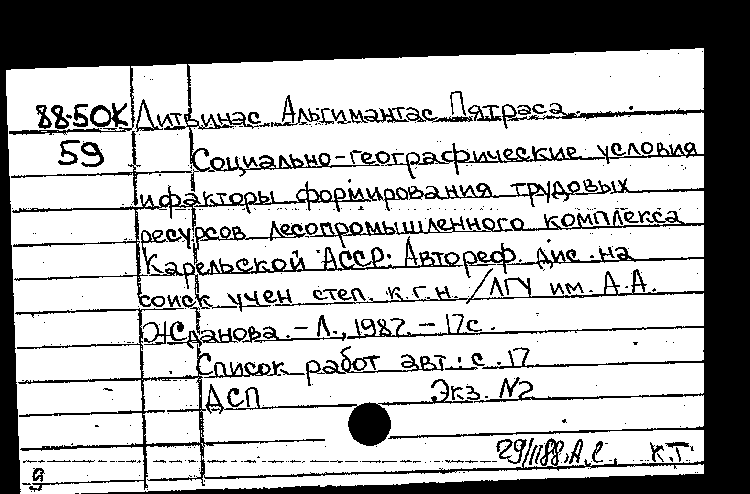 88-50К Литвинас Альгимантас Пятраса
59 Социально-географические условия
и факторы формирования трудовых
ресурсов лесопромышленного комплекса
Карельской АССР: Автореф. дис. на
соиск учен степ. к.г.н. /ЛГУ им. А.А.
Жданова. - Л., 1987. - 17с.
Список работ авт.: с. 17
ДСП Экз. №2
К.Т
9